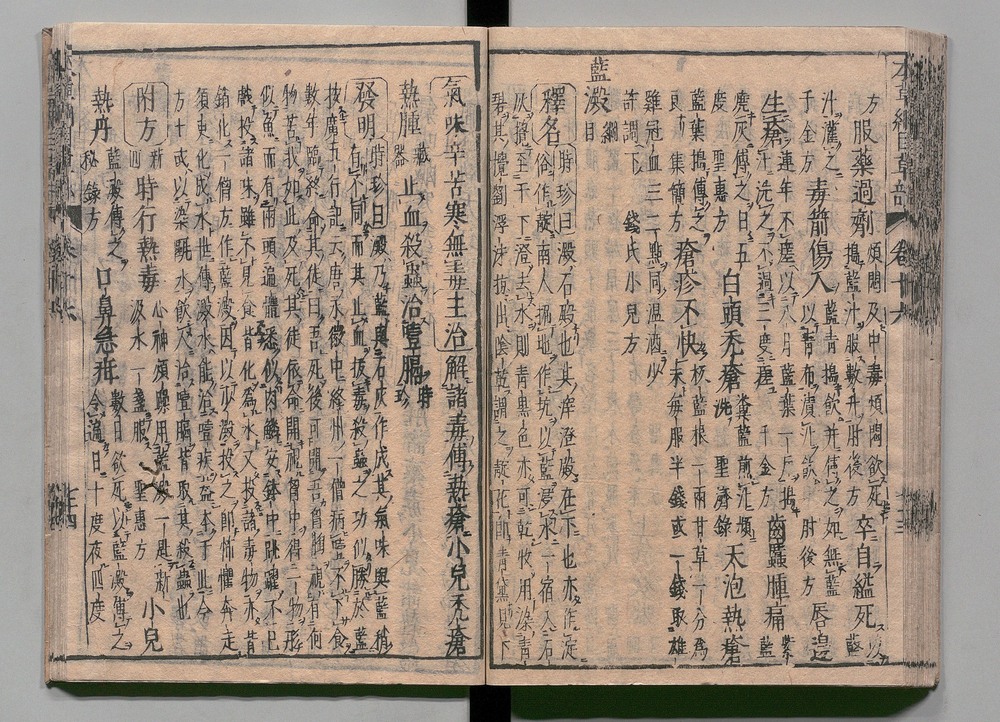 方 服藥過劑 煩悶及中毒煩悶欲死搗藍汁服數升肘後方 卒自縊死 以藍
汁灌之千金方 毒箭傷人 藍青搗飲并傅之如無藍以青布漬汁飲肘後方 唇邊
生瘡 連年不瘥以八月藍葉一斤搗汁洗之不過三度瘥千金方 齒䘌腫痛 紫藍
燒灰傅之日五度聖惠方 白頭禿瘡 糞藍煎汁頻洗聖濟錄 天泡熱瘡
藍葉搗傅之良集簡方 瘡疹不快 板藍根一兩甘草一分為末每服半錢或一錢取雄
雞冠血三二點同溫酒少許調下 錢氏小兒方
藍澱 綱目
釋名 時珍曰澱石殿也其滓澄殿在下也亦作淀俗作靛南人掘地作坑以藍浸水一宿入石
灰攪至千下澄去水則青黑色亦可乾收用染青碧其攪劉浮沫掠出陰乾謂之靛花即青黛見下
氣味辛苦寒無毒主治解諸毒傅熱瘡小兒禿瘡
熱腫 藏器 止血殺蟲治噎膈 時珍
發明 時珍曰澱乃藍與石灰作成其氣味與藍稍有不同而其止血拔毒殺蟲之功似勝於藍
按廣五行記云唐永徽中絳州一僧病噎不下食數年臨終命其徒曰吾死後可開吾胸喉視有何
物苦我如此及死其徒依命開視胸中得一物形似魚而有兩頭遍體悉似肉鱗安鉢中跳躍不已
戲投諸味雖不見食皆化為水又投諸毒物亦皆銷化一僧方作藍澱因以少澱投之即怖懼奔走
須臾化成水世傳澱水能治噎疾蓋本于此今方士或以染甕水飲人治噎膈皆取其殺蟲也
附方 新四 時行熱毒 心神煩躁用藍澱一匙新汲水一盞服聖惠方 小兒
熱丹 藍澱傅之秘錄方 口鼻急疳 數日欲死以藍澱傅之令遍日十度夜四度